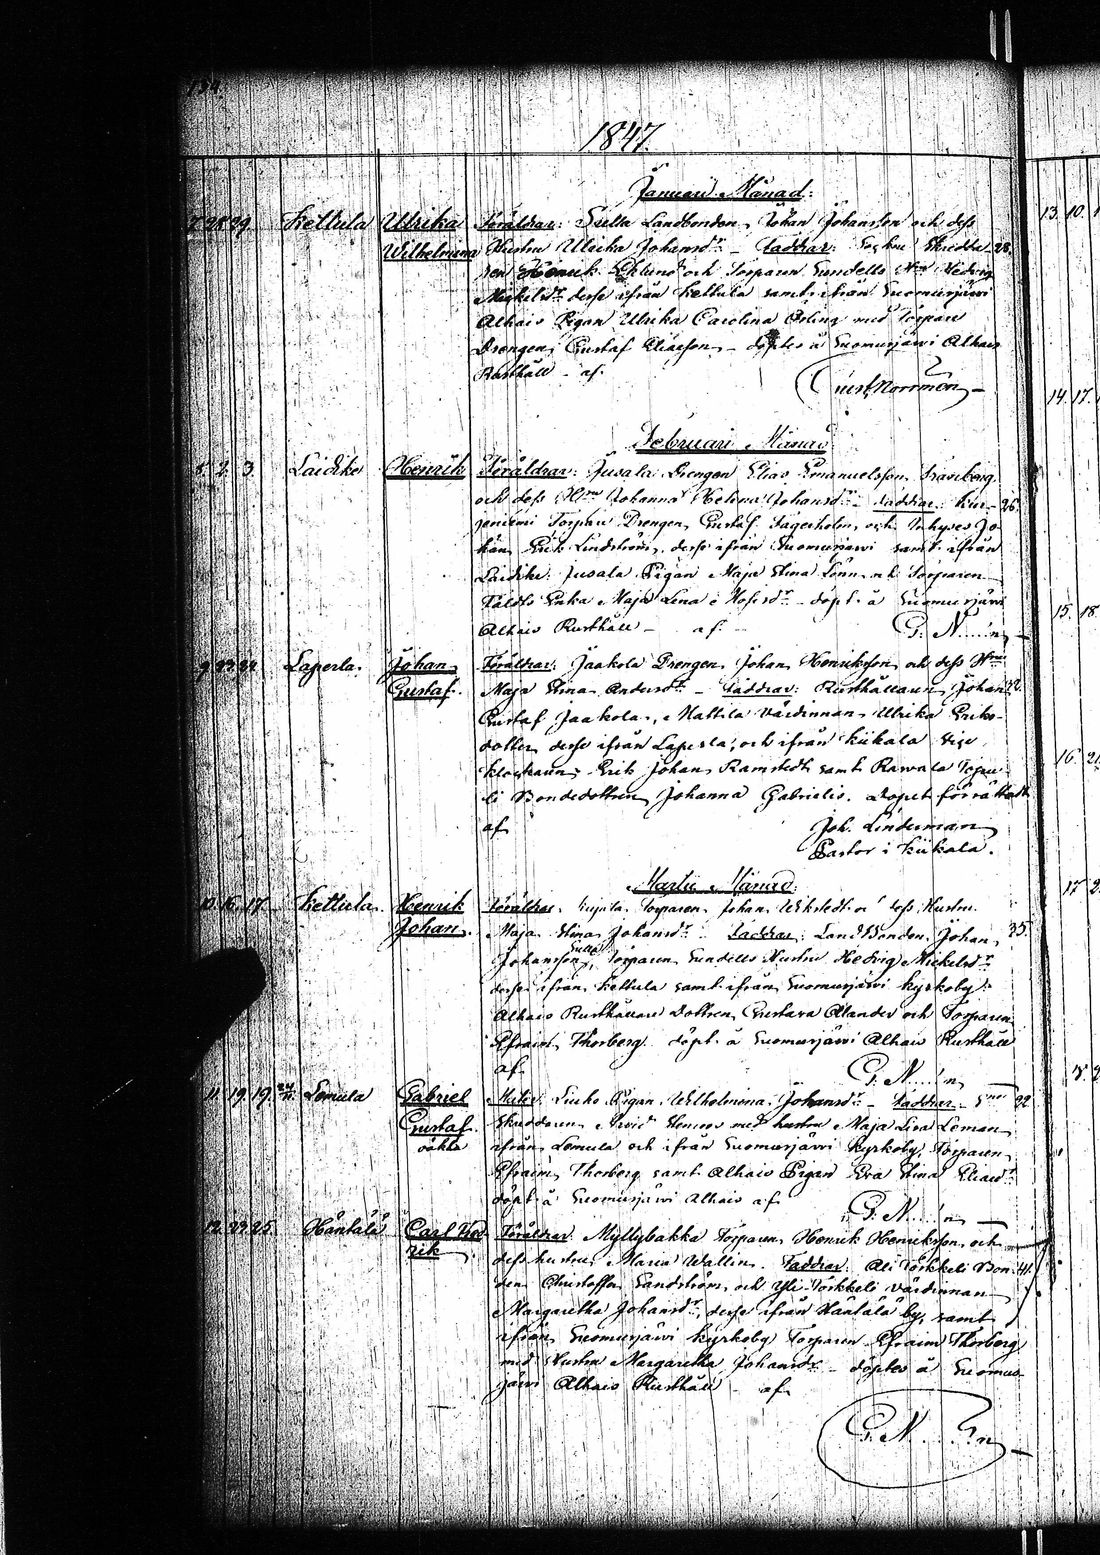 134.
1847.
Januari Månad:
7. 28. 29. Kettula Ulrika Föräldrar: Sulla Landbonden, Johan Johansson och dess
Wilhelmina Hustru Ulrika Johansdr – Faddrar: Sockne Skrädda- 28.
ren Henrik Eklund och Torparen Sundells Hru Hedvig
Mickelsdr desse ifrån Kettula samt ifrån Suomusjärvi
Alhais Pigan Ulrika Carolina Örling med Torpare
Drengen, Gustaf Eliasson, – döptes å Suomusjärvi Alhais
Rusthåll – af.
Gust. Norrmén
Februari Månad
8. 2. 3. Laidike Henrik Föräldrar: Jusala Drengen Elias Emanuelsson
och dess Hru Johanna Helena Johansdr – Faddrar: 26.
Torpare Drengen, Gustaf Jägerholm, och Inhyses Jo-
han Erik Lindström, desse ifrån Suomusjärvi samt ifrån
Laidike Jusala Pigan Maja Stina Lönn och Torparen
Enka Maja Lena – döpt å Suomusjärvi
Alhais Rusthåll – af. – G. N.....n
9. 23. 24. Laperla. Johan Föräldrar: Jaakola Drengen, Johan Henriksson, och dess Hru
Gustaf. Maja Stina Andersdr – Faddrar: Rusthållaren, Johan 32.
Gustaf Jaakola, Mattila Värdinnan, Ulrika Eriks-
dotter, desse ifrån Laperla, och ifrån Kiikala vice
klockaren, Erik Johan Ramstedt samt Rawala
Bondedottren, Johanna Gabrielis. Dopet förrättadt
af Joh. Lindeman
Pastor i Kiikala.
Martii Månad:
10. 16. 17. Kettula. Henrik Föräldrar: Torparen Johan Wikstedt o. dess Hustru
Johan. Maja Stina Johansdr. Faddrar: Landbonden, Johan 35.
Johansson Sulla, Torparen Sundells Hustru Hedvig Mickelsdr
desse ifrån Kettula samt ifrån Suomusjärvi kyrkoby:
Alhais Rusthållare dottren Gustava Alander och Torparen
Efraim Thorberg. döpt å Suomusjärvi Alhais Rusthåll
af. G. N.....n
11. 19. 19. Lemula Gabriel Moder: Pigan, Wilhelmina Johansdr – Faddrar: 22
Gustaf. Skräddaren, Arvid med hustru Maja Lisa Leman,
oäkta ifrån Lemula och ifrån Suomusjärvi Kyrkoby, Torparen
Efraim Thorberg samt Alhais Pigan Eva Stina Eliasdr
döpt å Suomusjärvi Alhais af G. N.....n
12. 23. 25. Häntälä Carl Fred- Föräldrar: Myllybakka Torparen, Henrik Henriksson, och
rik dess hustru, Maria Wallin. Faddrar: Ali Törkkeli Bon- 41.
den Christoffer Sandström, och Yli Törkkeli värdinnan
Margaretha Johansdr, desse ifrån Häntälä by, samt
ifrån Suomusjärvi kyrkoby Torparen Efraim Thorberg
med Hustru Margaretha Johansdr – döptes å Suomus-
järvi Alhais Rusthåll – af
G. N.....n
13. 10.
14. 17.
15. 18.
16.
17.